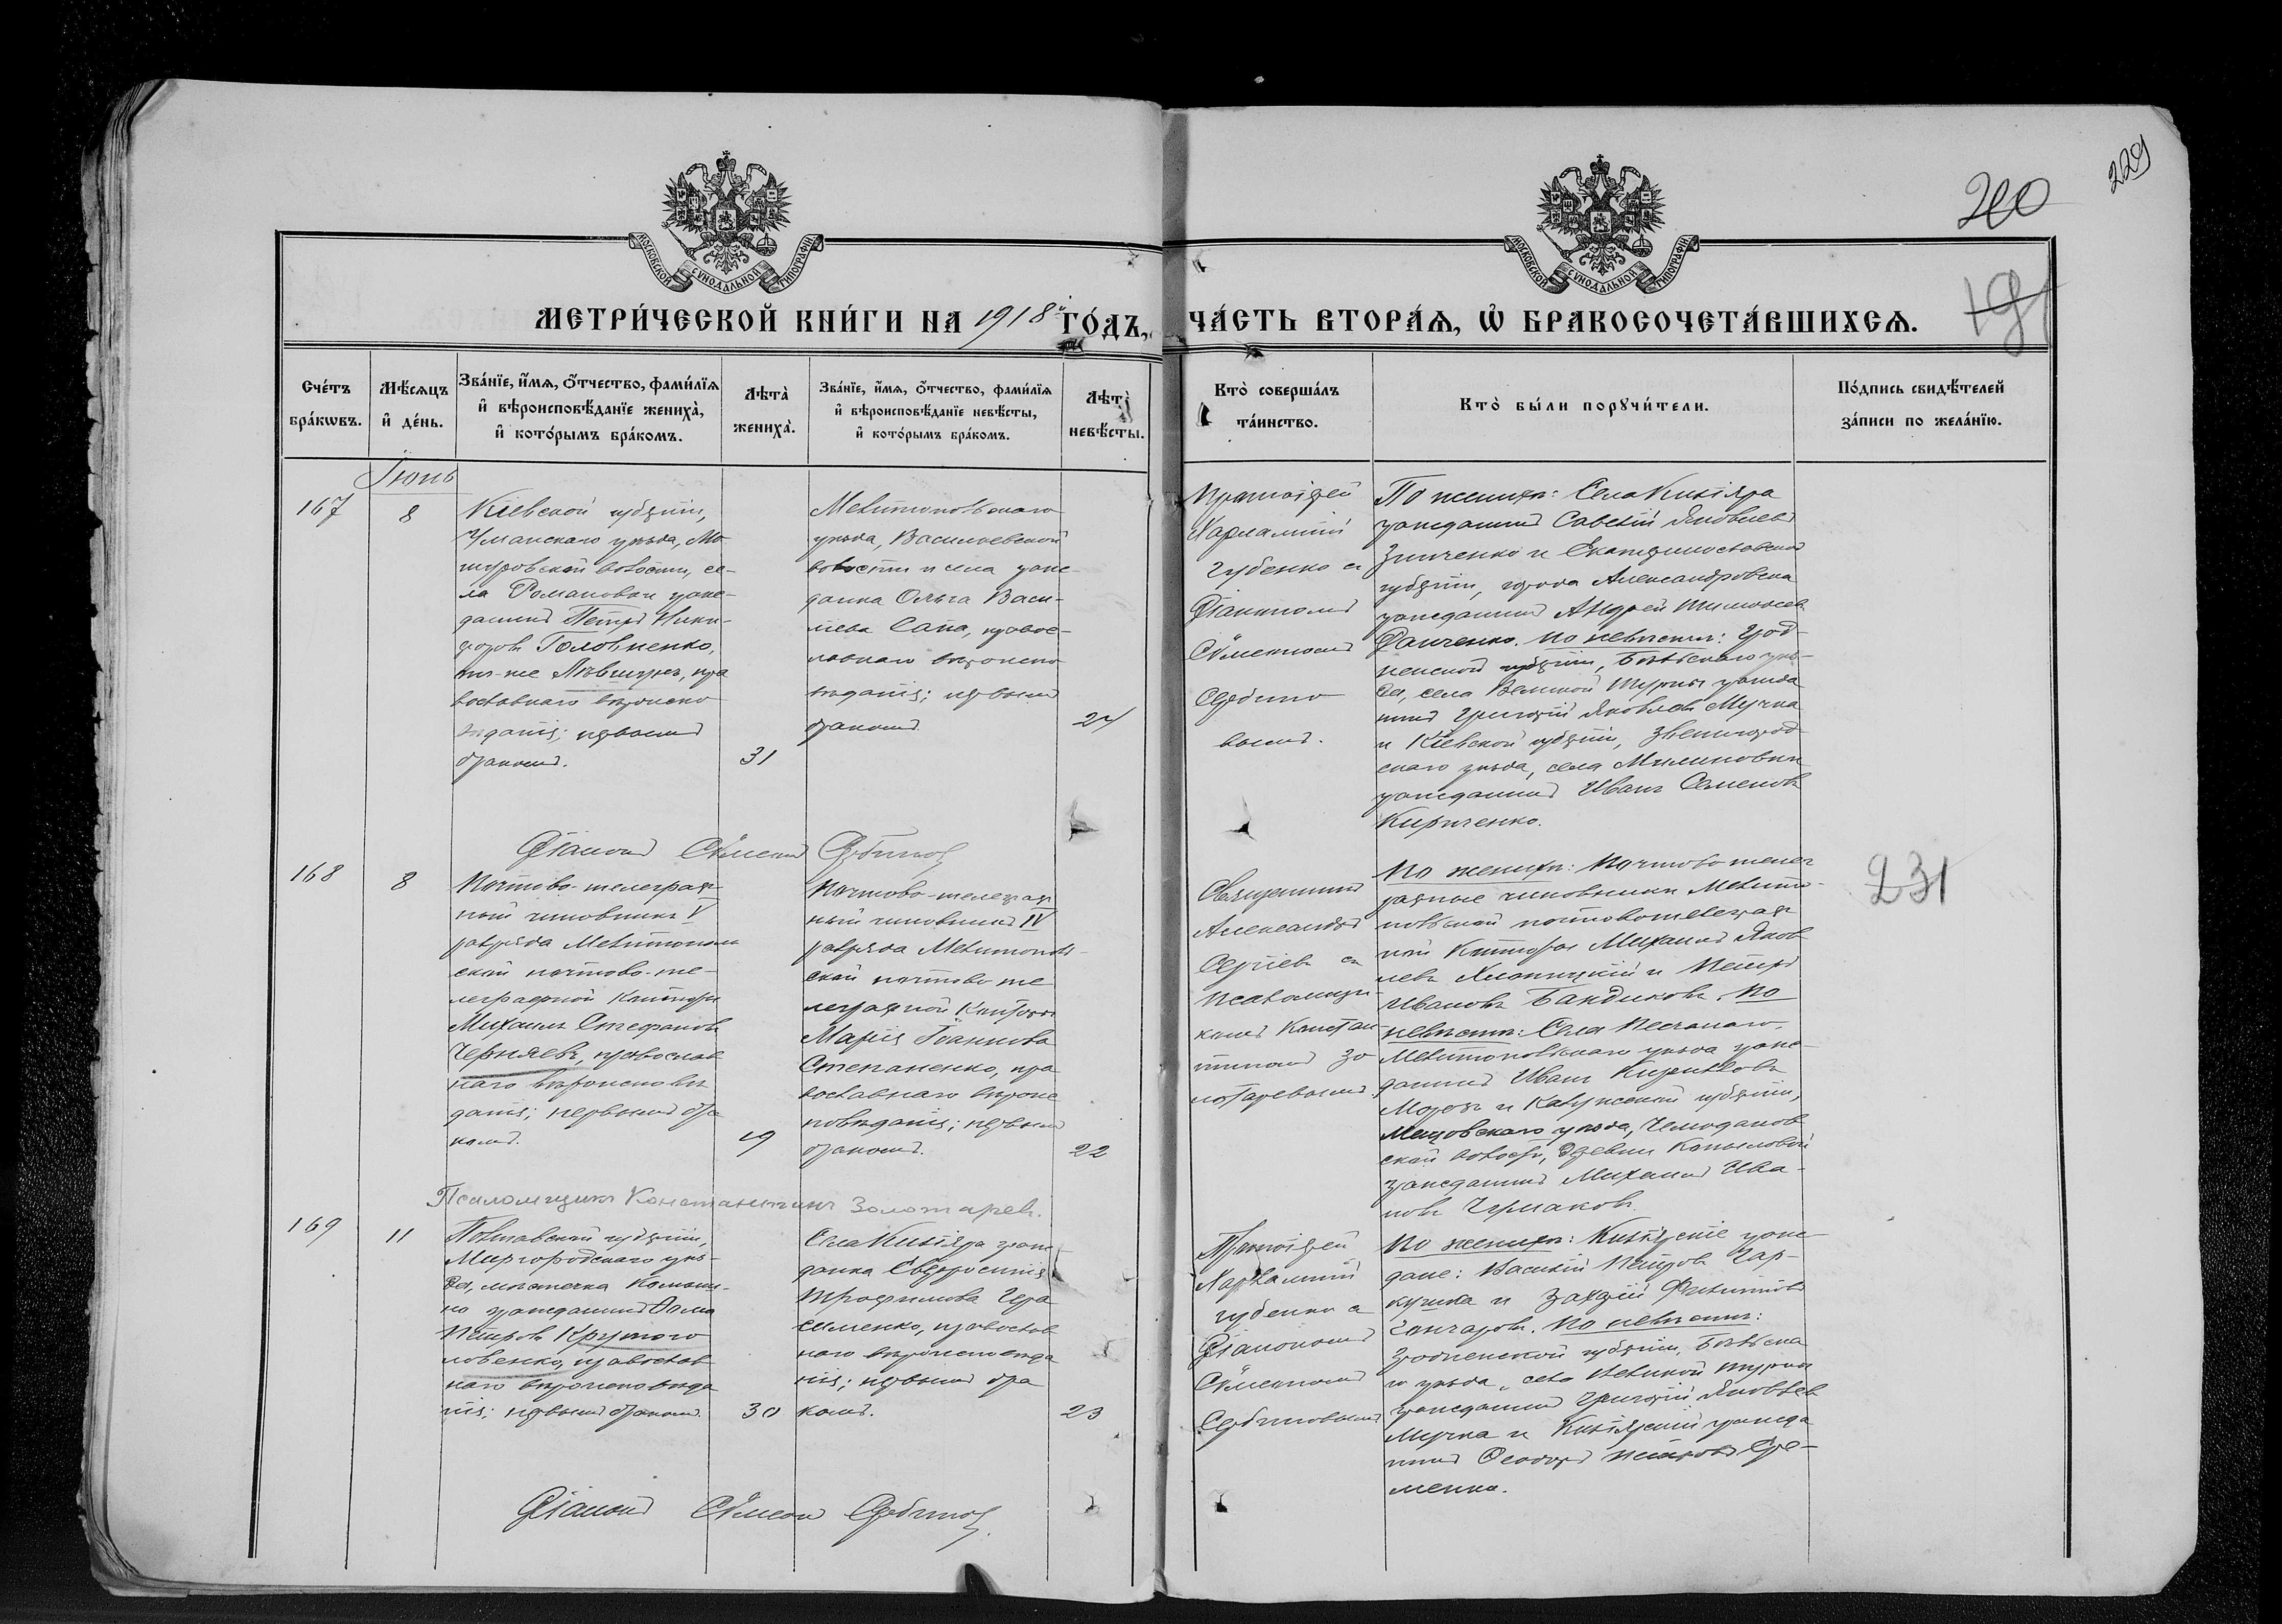 200
229
191
МОСКОВСКОЙ СѴНОДАЛЬНОЙ ТИПОГРАФІИ
МОСКОВСКОЙ СѴНОДАЛЬНОЙ ТИПОГРАФІИ
МЕТРИ́ЧЕСКОЙ КНИ́ГИ НА 1918й ГО́ДЪ,
ЧА́СТЬ ВТОРА́Ѧ, Ѡ҆ БРАКОСОЧЕТА́ВШИХСѦ.
Сче́тъ
бра́кѡвъ.
Мѣ́сѧцъ
и҆ де́нь.
Зва́нїе, и҆́мѧ, ѻ҆́тчество, фами́лїѧ
и҆ вѣроисповѣ́данїе жениха̀,
и҆ кото́рымъ бра́комъ.
Лѣта̀
жениха̀.
Зва́нїе, и҆́мѧ, ѻ҆́тчество, фами́лїѧ
и҆ вѣроисповѣ́данїе невѣ́сты,
и҆ кото́рымъ бра́комъ.
Лѣта̀
невѣ́сты.
Кто̀ соверша́лъ
та́инство.
Кто̀ бы́ли порꙋчи́тели.
По́дпись свидѣ́телей
за́писи по жела́нїю.
Іюнь
167
8
Кіевской губерніи,
Уманскаго уѣзда, Мо-
нтуровской волости, се-
ла Романовки граж-
данинъ Петръ Ники-
форовъ Головненко,
православнаго вѣроиспо-
вѣданія; первымъ
бракомъ.
31
Мелитопольскаго
уѣзда, Васильевской
волости и села граж-
данка Ольга Васи-
ліева Сапа, правос-
лавнаго вѣроиспо-
вѣданія; первымъ
бракомъ.
27
Протоіерей
Харлампій
Губенко съ
Діакономъ
Сѵмеономъ
Сербино-
вымъ.
По женихѣ: Села Кизіяра
гражданинъ Савелій Яковлевъ
Зинченко и Екатеринославской
губерніи, города Александровска
гражданинъ Андрей Тимофеев
Данченко. По невѣстѣ: Грод-
ненской губерніи, Бѣльскаго уѣз-
да, села Великой Турны гражда-
нинъ Григорій Яковлевъ Мучка
и Кіевской губерніи, Звенигород-
скаго уѣзда, села
гражданинъ Иванъ Семеновъ
Кириченко.
Діаконъ Сѵмеонъ Сербиновъ
168
8
Почтово-телеграф-
ный чиновникъ V
разряда Мелитополь-
ской почтово-те-
леграфной Конторы
Михаилъ Стефановъ
Черняевъ, православ-
наго вѣроисповѣ-
данія; первымъ бра-
комъ.
19
Почтово-телеграф-
ный чиновникъ IV
разряда Мелитополь-
ской почтово-те-
леграфной Конторы
Марія Іоаннова
Степаненко, пра-
вославнаго вѣроис-
повѣданія; первымъ
бракомъ.
22
Священникъ
Александръ
Сергіевъ съ
псаломщи-
комъ Констан-
тиномъ Зо-
лотаревымъ.
По женихѣ: почтово-телег-
рафные чиновники Мелито-
польской почтовотелеграф-
ной Конторы Михаилъ Яков-
левъ Хлопицкій и Петръ
Ивановъ Бандиковъ. По
невѣстѣ: Села Песчанаго,
Мелитопольскаго уѣзда граж-
данинъ Иванъ Кирилловъ
Морозъ и Калужской губерніи,
Мещовскаго уѣзда, Чемоданов-
ской волости, деревни Копыловой
гражданинъ Михаилъ Ива-
новъ Чермаковъ.
231
Псаломщикъ Константинъ Золотаревъ.
169
11
Полтавской губерніи,
Миргородскаго уѣз-
да, мѣстечка Комыш-
но гражданинъ Ѳома
Петровъ Крутого-
ловенко, православ-
наго вѣроисповѣда-
нія; первымъ бракомъ.
30
Села Кизіяра граж-
данка Евфросинія
Трофимова Гера-
сименко, православ-
наго вѣроисповѣда-
нія; первымъ бра-
комъ.
23
Протоіерей
Харлампій
Губенко съ
Діакономъ
Сѵмеономъ
Сербиновымъ
По женихѣ: Кизіярскіе граж-
дане: Василій Петровъ Гар-
куша и Захарій Филипповъ
Гончаровъ. По невѣстѣ:
Гродненской губерніи, Бѣльска-
го уѣзда, села Великой Турны
гражданинъ Григорій Яковлев
Мучка и Кизіярскій гражда-
нинъ Ѳеодоръ Петровъ Ере-
менко.
Діаконъ Сѵмеонъ Сербиновъ.